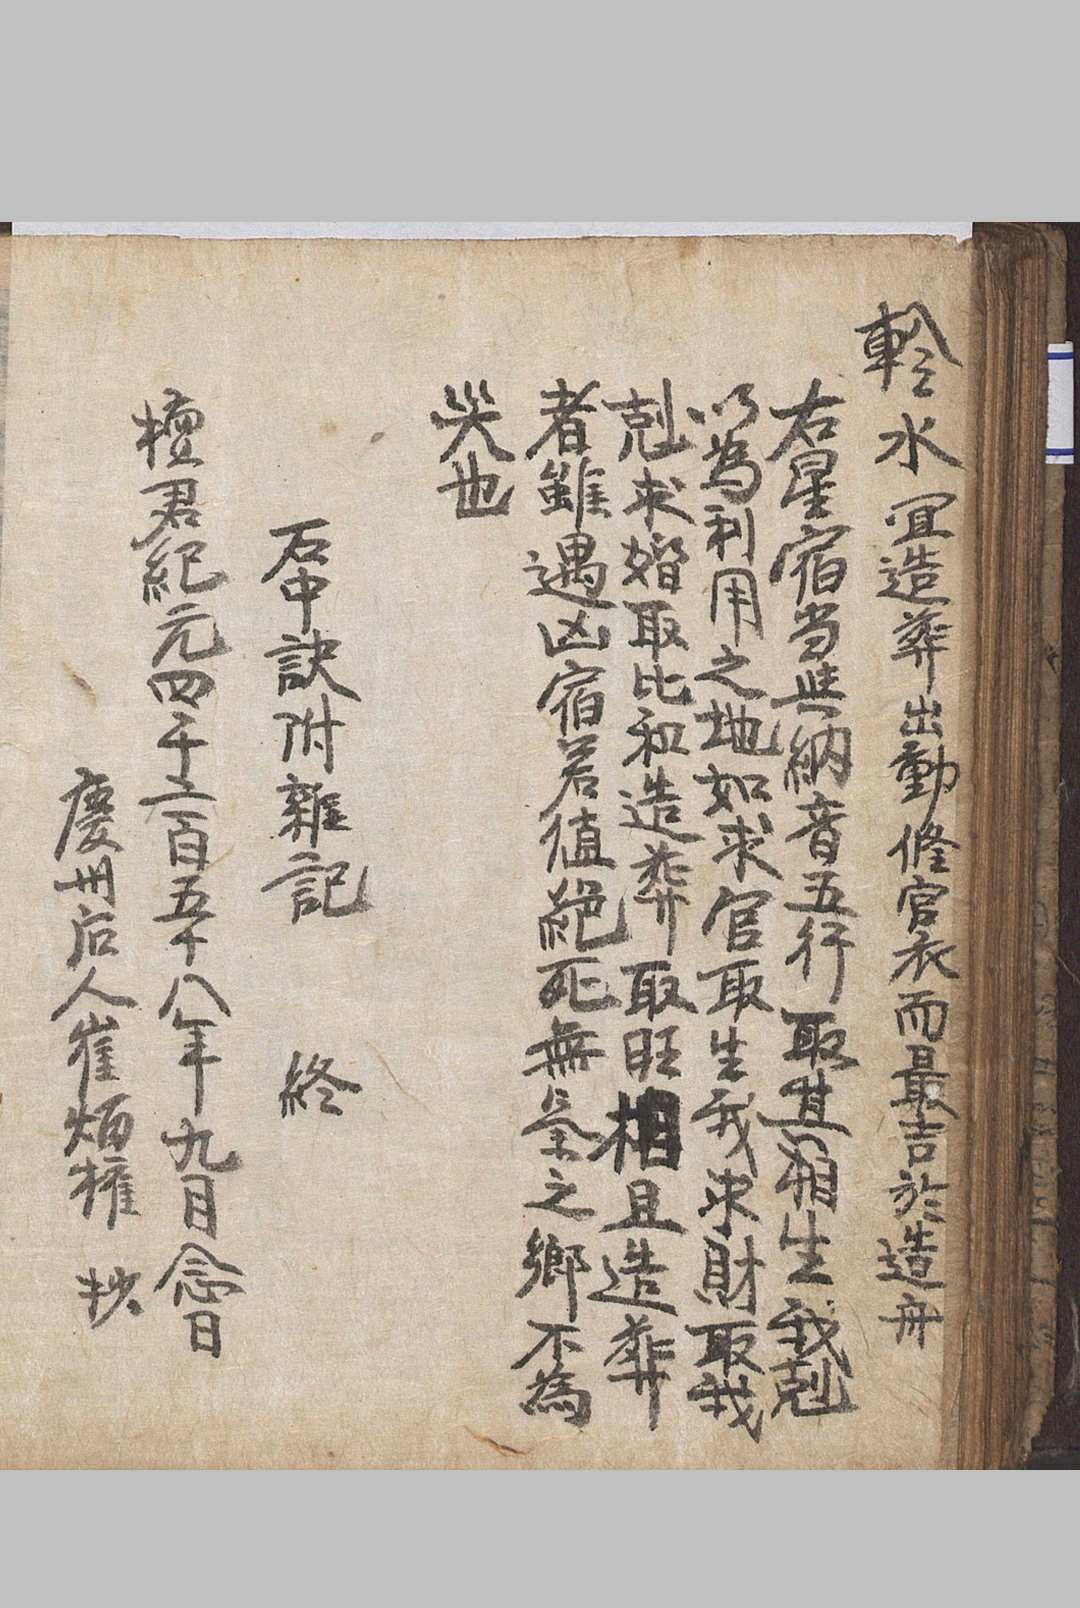 軫水 宜造葬出動修官衣而最吉於造舟
右星宿当与納音五行取其相生我剋
以為利用之地如求官取生我求財取我
剋求婚取比和造葬取旺相且造葬
者雖遇凶宿若值絶死無氣之鄉不為
灾也
石中訣附雜記 終
檀君紀元四千二百五十八年九月念日
慶州后人崔炳權 抄